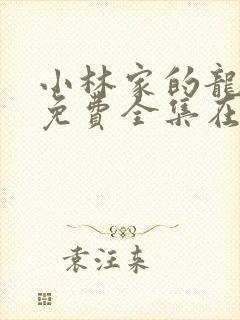 小林家的龍
免費全集在
袁汪东